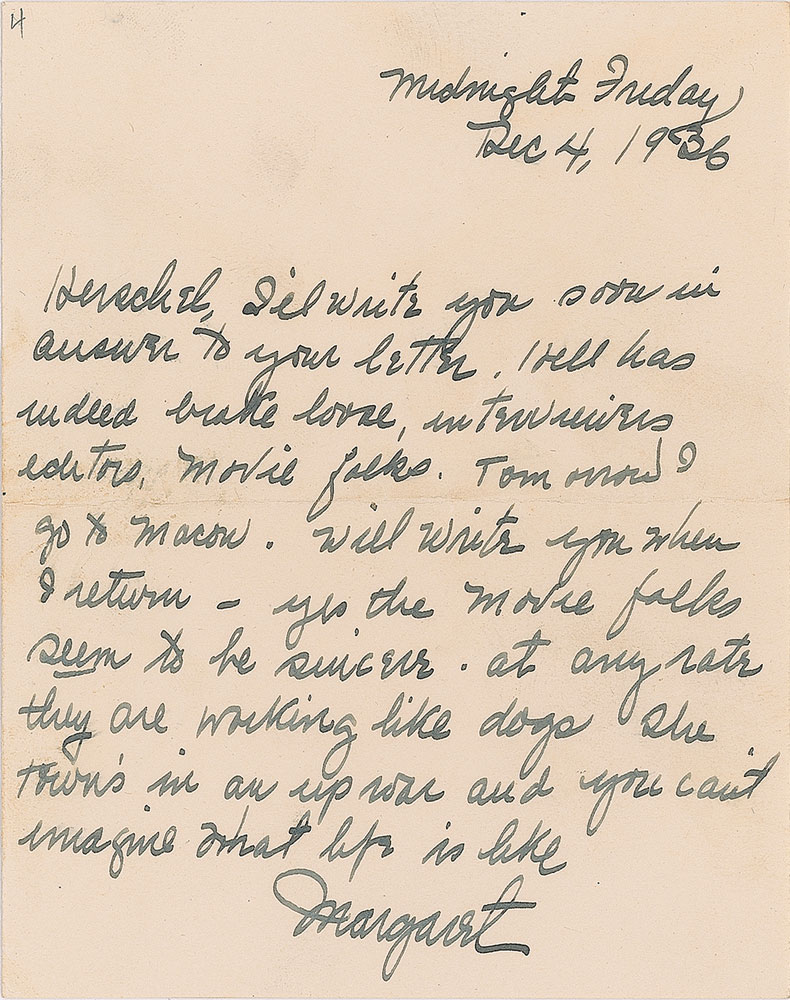 4
Midnight Friday
Dec 4, 1936
Herschel, I'll write you soon in
answer to your letter. Hell has
indeed broke loose, interviewers
editors, movie folks. Tomorrow I
go to Macon. Will write you when
I return - yes the movie folks
seem to be sincere. at any rate
they are working like dogs She
town's in an up roar and you can't
imagine what life is like
Margaret